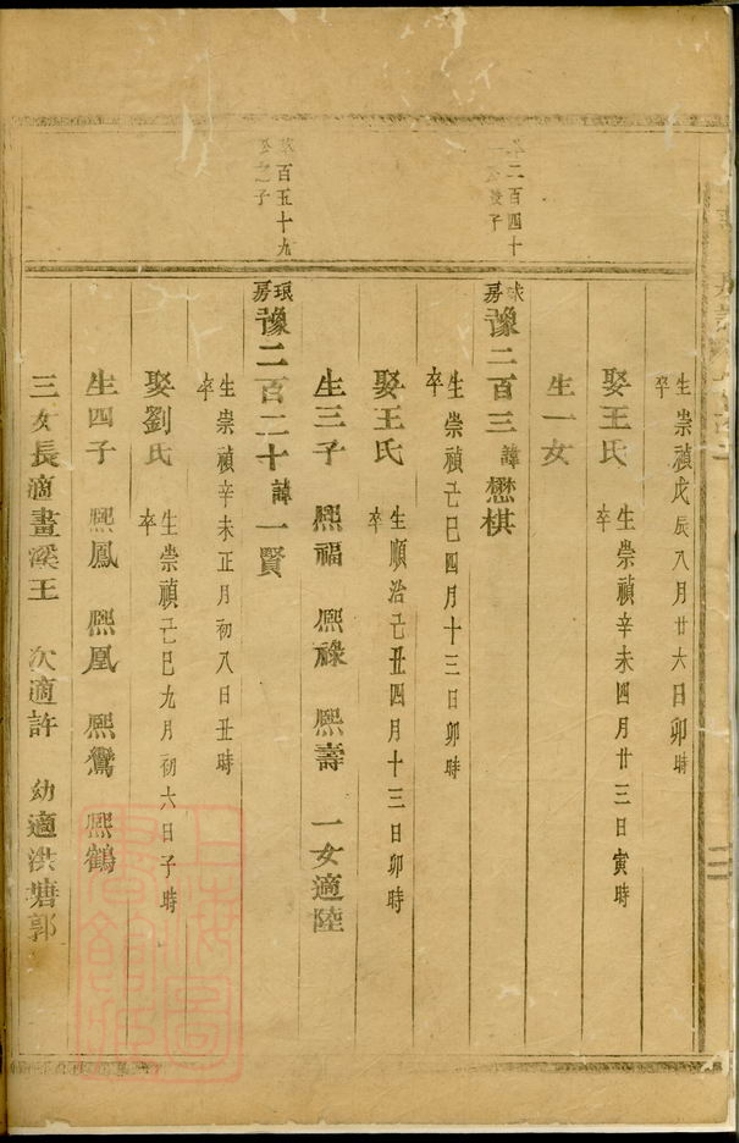 生崇禎戊辰八月廿六日卯時
卒
娶王氏 生崇禎辛未四月廿三日寅時
卒
生一女
二百四十
子
房
豫二百三 諱懋棋
生崇禎己巳四月十三日卯時
卒
娶王氏 生順治己丑四月十三日卯時
卒
生三子 熙福 熙祿 熙壽 一女適陸
百五十九
之子
琅房
豫二百二十 諱一賢
生崇禎辛未正月初八日丑時
卒
娶劉氏 生崇禎己巳九月初六日子時
卒
生四子 熙鳳 熙凰 熙鸞 熙鶴
三女長適畫溪王 次適許 幼適洪塘郭
二
上海圖書館藏